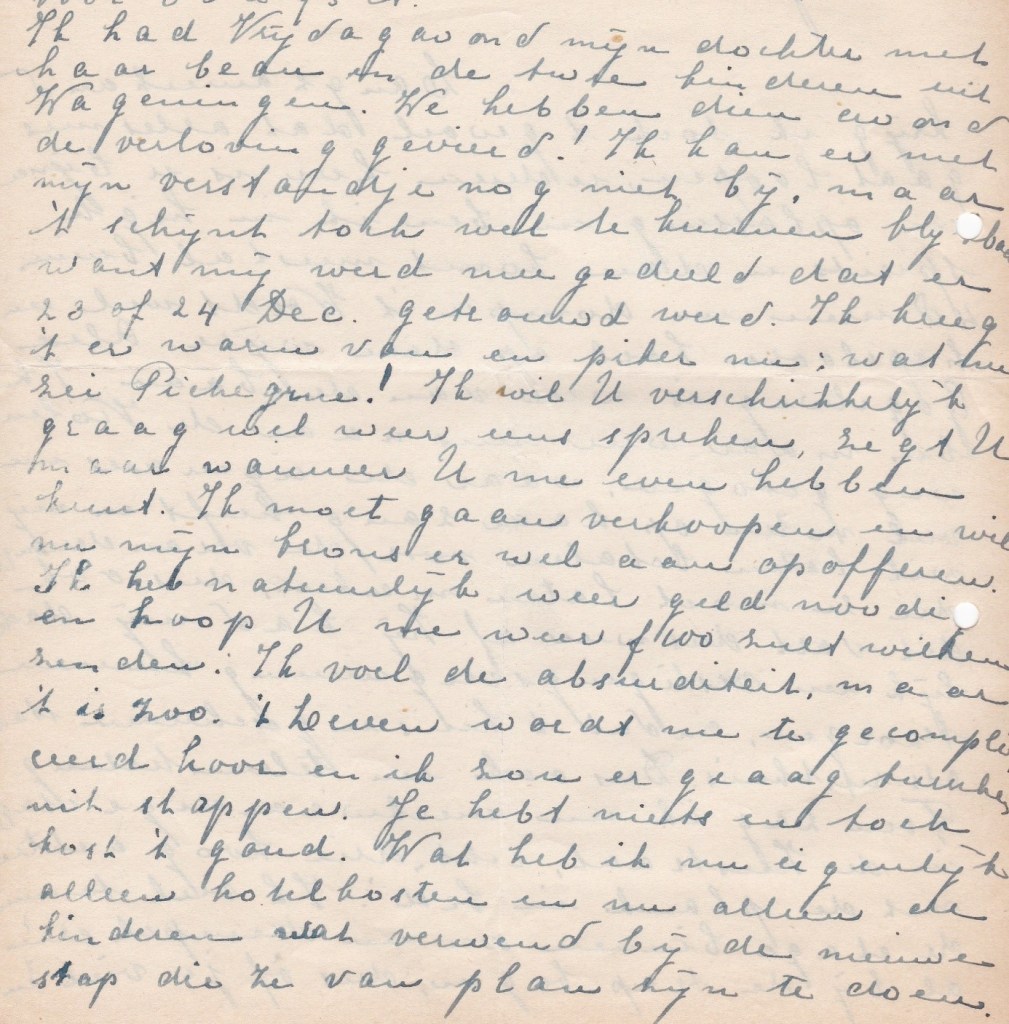 Ik had Vrijdagavond mijn dochter met
haar beau en de twee kinderen uit
Wageningen. We hebben dien avond
de verloving gevierd! Ik kan er met
mijn verstandje nog niet bij, maar
't schijnt toch wel te kunnen blijkbaar
want mij werd meegedeeld dat er
23 of 24 Dec. getrouwd werd. Ik kreeg
't er warm van en pieker nu: wat nu
zei Pichegrue! Ik wil U verschrikkelijk
graag wel weer eens spreken, zegt U
maar wanneer U me even hebben
kunt. Ik moet gaan verkoopen en wil
nu mijn brons er wel aan opofferen.
Ik heb natuurlijk weer geld noodig
en hoop U me weer f 100 zult willen
zenden. Ik voel de absurditeit, maar
't is zoo. 't Leven wordt me te gecompli
ceerd hoor en ik zou er graag tusschen
uit stappen. Je hebt niets en toch
kost 't goud. Wat heb ik nu eigenlijk
alleen hotelkosten en nu alleen de
kinderen wat verwend bij de nieuwe
stap die ze van plan zijn te doen.